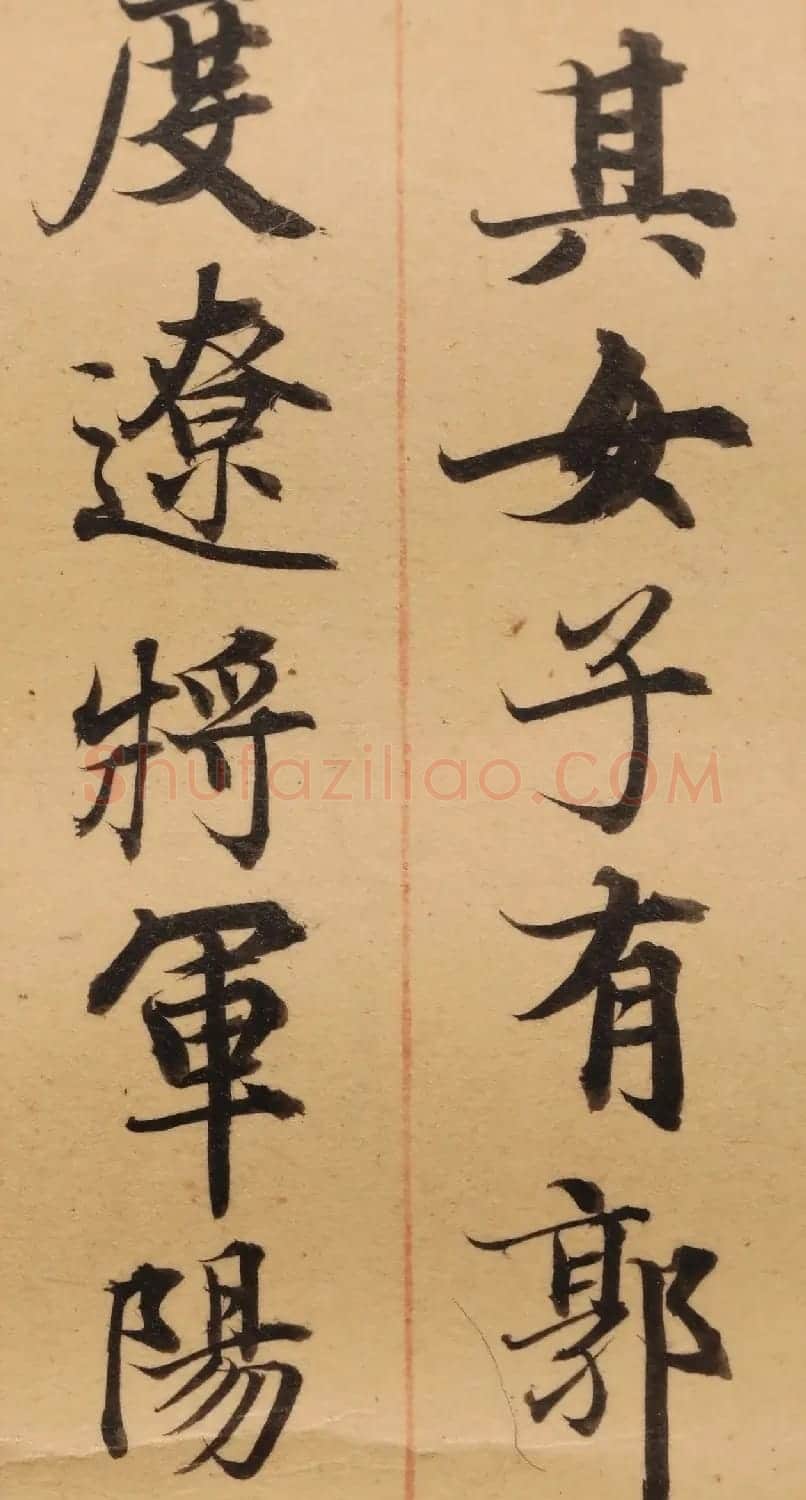 其女子有郭
度遼將軍陽
Shufaziliao.COM